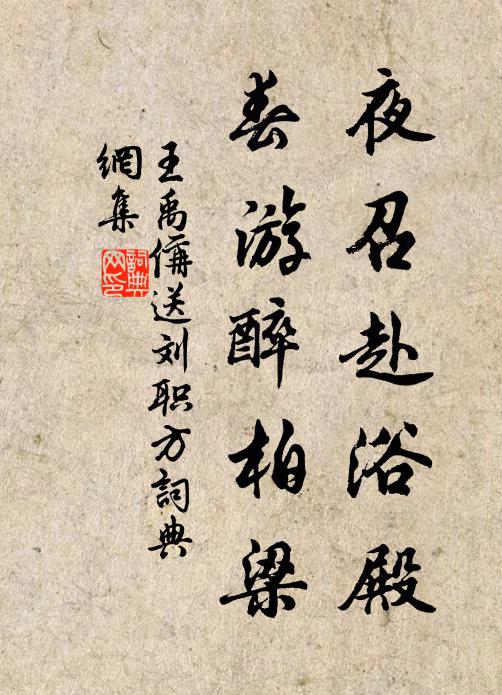 夜召赴浴殿
春游醉柏梁
王禹偁送刘职方詞典
網集
詞典
网印